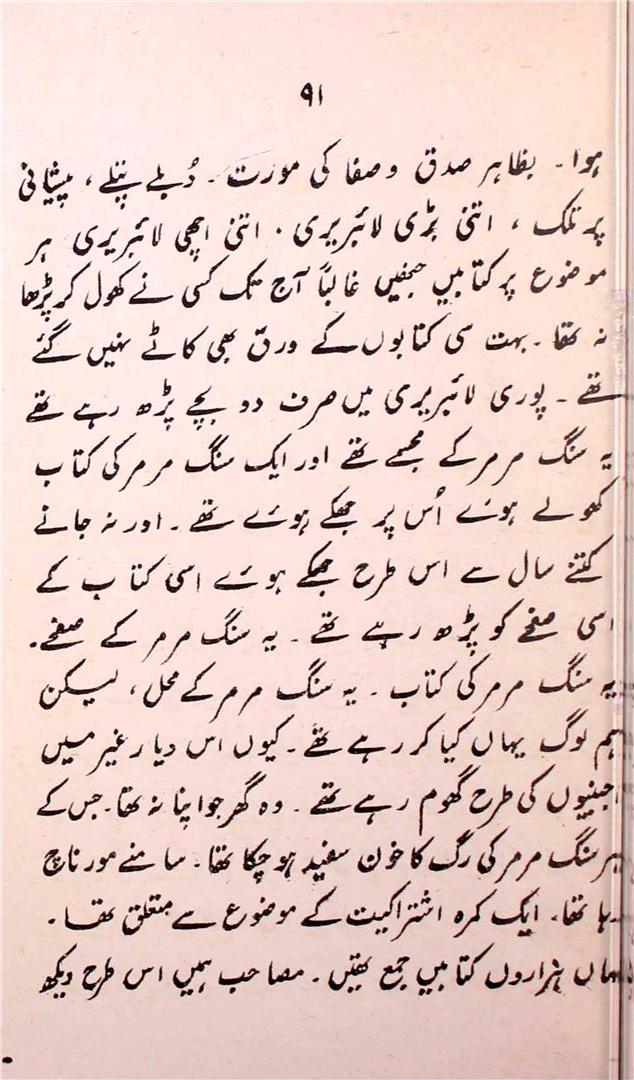 ۹۱
ہوا۔ بظاہر صدق وصفا کی مورت۔ دُبلے پتلے، پیشانی
پر تلک، اتنی بڑی لائبریری۔ اتنی اچھی لائبریری ہر
موضوع پر کتابیں جنھیں غالباً آج تک کسی نے کھول کر پڑھا
نہ تھا۔ بہت سی کتابوں کے ورق بھی کاٹے نہیں گئے
تھے۔ پوری لائبریری میں صرف دو بچے پڑھ رہے تھے
یہ سنگ مرمر کے مجسمے تھے اور ایک سنگ مرمر کی کتاب
کھولے ہوئے اُس پر جھکے ہوئے تھے۔ اور نہ جانے
کتنے سال سے اس طرح جھکے ہوئے اسی کتاب کے
اسی صفحے کو پڑھ رہے تھے۔ یہ سنگ مرمر کے صفحے۔
یہ سنگ مرمر کی کتاب۔ یہ سنگ مرمر کے محل، لیکن
ہم لوگ یہاں کیا کر رہے تھے۔ کیوں اس دیار غیر میں
اجنبیوں کی طرح گھوم رہے تھے۔ وہ گھر جو اپنا نہ تھا۔ جس کے
ہر سنگ مرمر کی رگ کا خون سفید ہو چکا تھا۔ سامنے مور ناچ
رہا تھا۔ ایک کمرہ اشتراکیت کے موضوع سے متعلق تھا۔
یہاں ہزاروں کتابیں جمع تھیں۔ مصاحب ہمیں اس طرح دیکھ